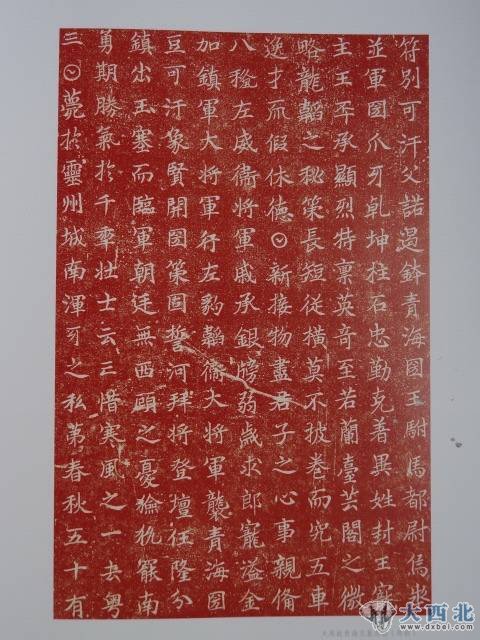 符別可汗父諾遏鉢青海圀王尉馬都尉
並軍圀爪牙乾坤柱石忠勤克著異姓封王
主王丕承顯烈特禀英奇至若蘭臺芸閣之微
略龍韜之秘策長短從橫莫不披卷而究五車
逸才而假休德𡆠新接物盡君子之心事親備
八稔左威衛將軍戚承銀牓弱歲求郎寵溢金
加鎮軍大將軍行左豹韜衛大將軍襲青海圀
豆可汗象賢開圀策固誓河拜將登壇任隆分
鎮出玉塞而臨軍朝廷無西顧之憂獫狁罷南
勇期勝氣於千秊壯士云亡惜寒風之一去粤
三𡆠薨於靈州城南渾牙之私第春秋五十有
大西北
www.dxbei.com